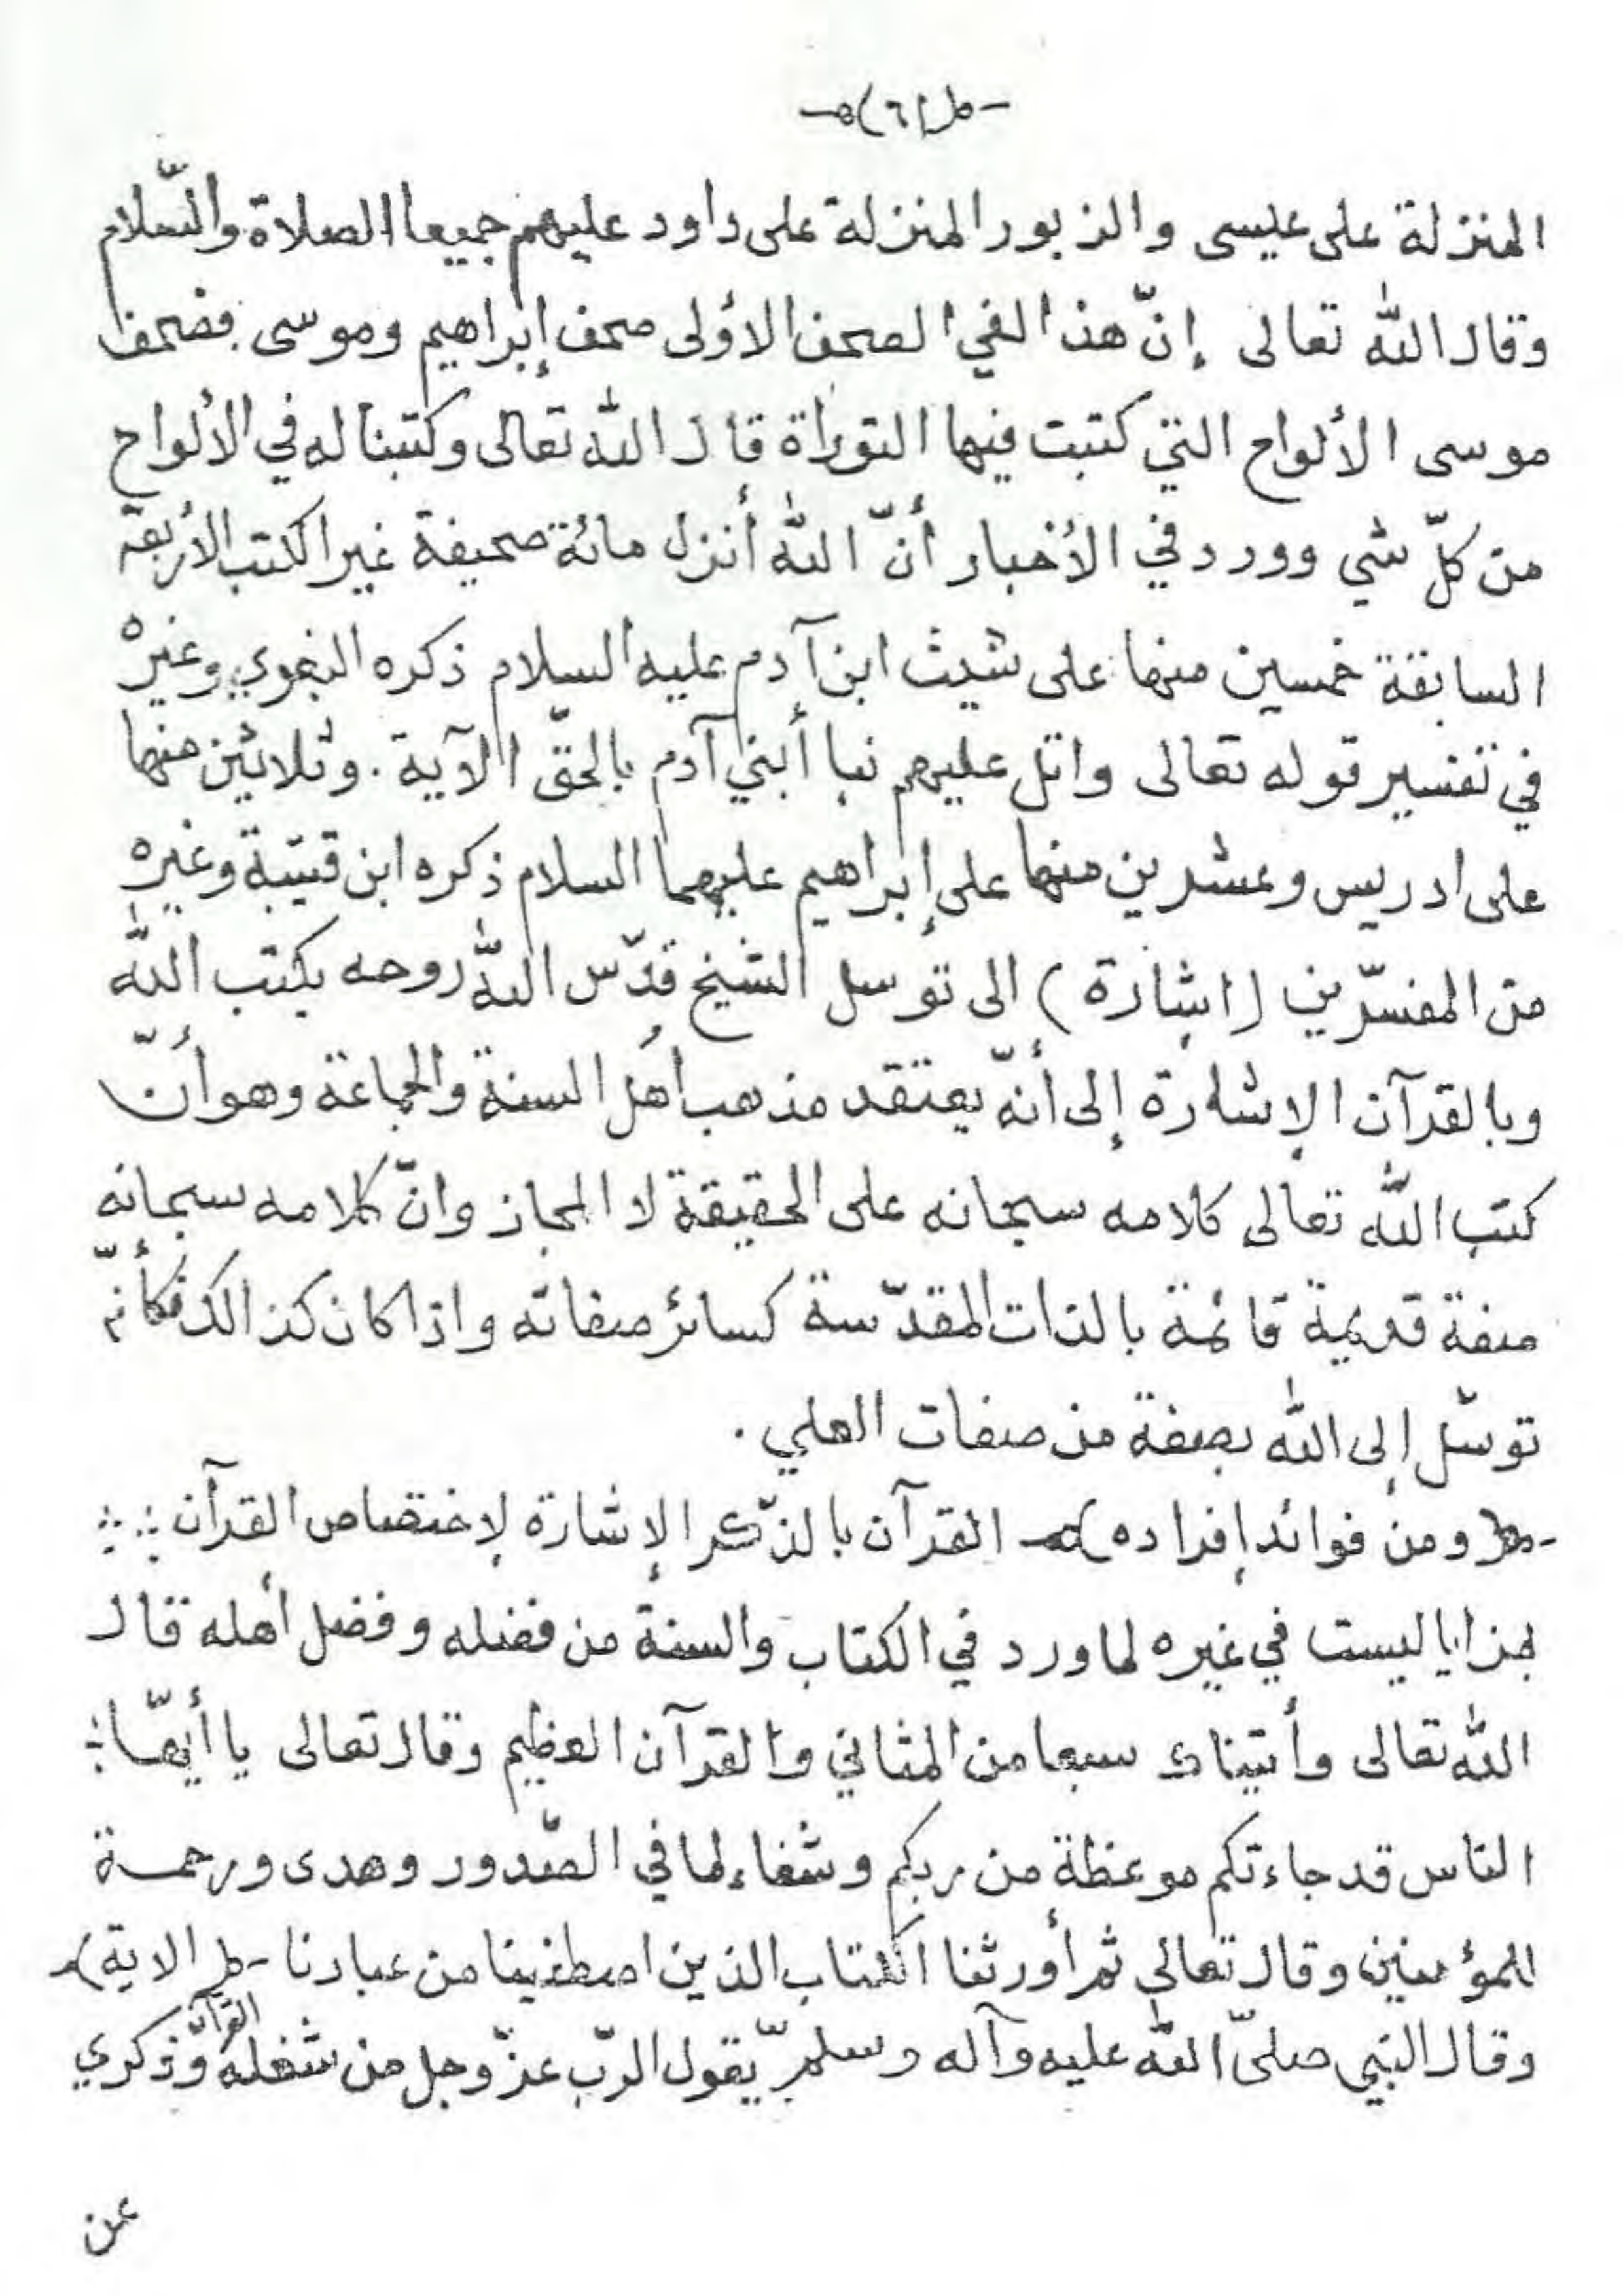 (٦)
المنزلة على عيسى والزبور المنزلة على داود عليهم جميعا الصلاة والسّلام
وقال الله تعالى إنّ هذا لفي الصحف الأولى صحف إبراهيم وموسى فصحف
موسى الألواح التي كتبت فيها التوراة قال الله تعالى وكتبنا له في الألواح
من كلّ شي وورد في الأخبار أنّ الله أنزل مائة صحيفة غير الكتب الأربعة
السابقة خمسين منها على شيث ابن آدم عليه السلام ذكره البغوي وغيره
في تفسير قوله تعالى واتل عليهم نبا أبني آدم بالحقّ الآية . وثلاثين منها
على ادريس وعشرين منها على إبراهيم عليهما السلام ذكره ابن قتيبة وغيره
من المفسّرين (اشارة) الى توسل الشيخ قدّس الله روحه بكتب الله
وبالقرآن الإشارة إلى أنّه يعتقد مذهب أهل السنة والجماعة وهو أنّ
كتب الله تعالى كلامه سبحانه على الحقيقة لا المجاز وانّ كلامه سبحانه
صفة قديمة قائمة بالذات المقدّسة كسائر صفاته واذا كان كذالك فكأنّه
توسّل إلى الله بصفة من صفات العلي .
(ومن فوائد إفراده) القرآن بالذّكر الإشارة لإختصاص القرآن
بمزايا ليست في غيره لما ورد في الكتاب والسنة من فضله وفضل أهله قال
الله تعالى وأتيناك سبعا من المثاني والقرآن العظيم وقال تعالى يا أيّها
الناس قد جاءتكم موعظة من ربكم وشفاء لما في الصّدور وهدى ورحمة
للمؤمنين وقال تعالى ثم أورثنا الكتاب الذين اصطفينا من عبادنا (الاية)
وقال النبي صلىّ الله عليه وآله وسلم يقول الربّ عزّ وجل من شغله القرآن وذكري
عن